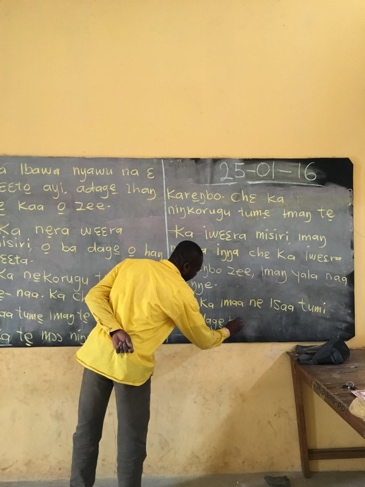 a Ibawa nyawu na ɛ
ɛɛto ayi, adage ɩhan
e kaa o zee.
Ka nera wɛɛra
isiri o ba dage o han
ɛɛta.
a nekorugu t
e- naa. Ka c
aa tume iman te
g te
25-01-16
Karenbo. Che ka
ninkorugu tume iman te
Ka iwɛɛra misiri iman
inna che ka iwɛɛra
nbo zee, iman yala naa
nye.
ka imaa ne isaa tumi
dage